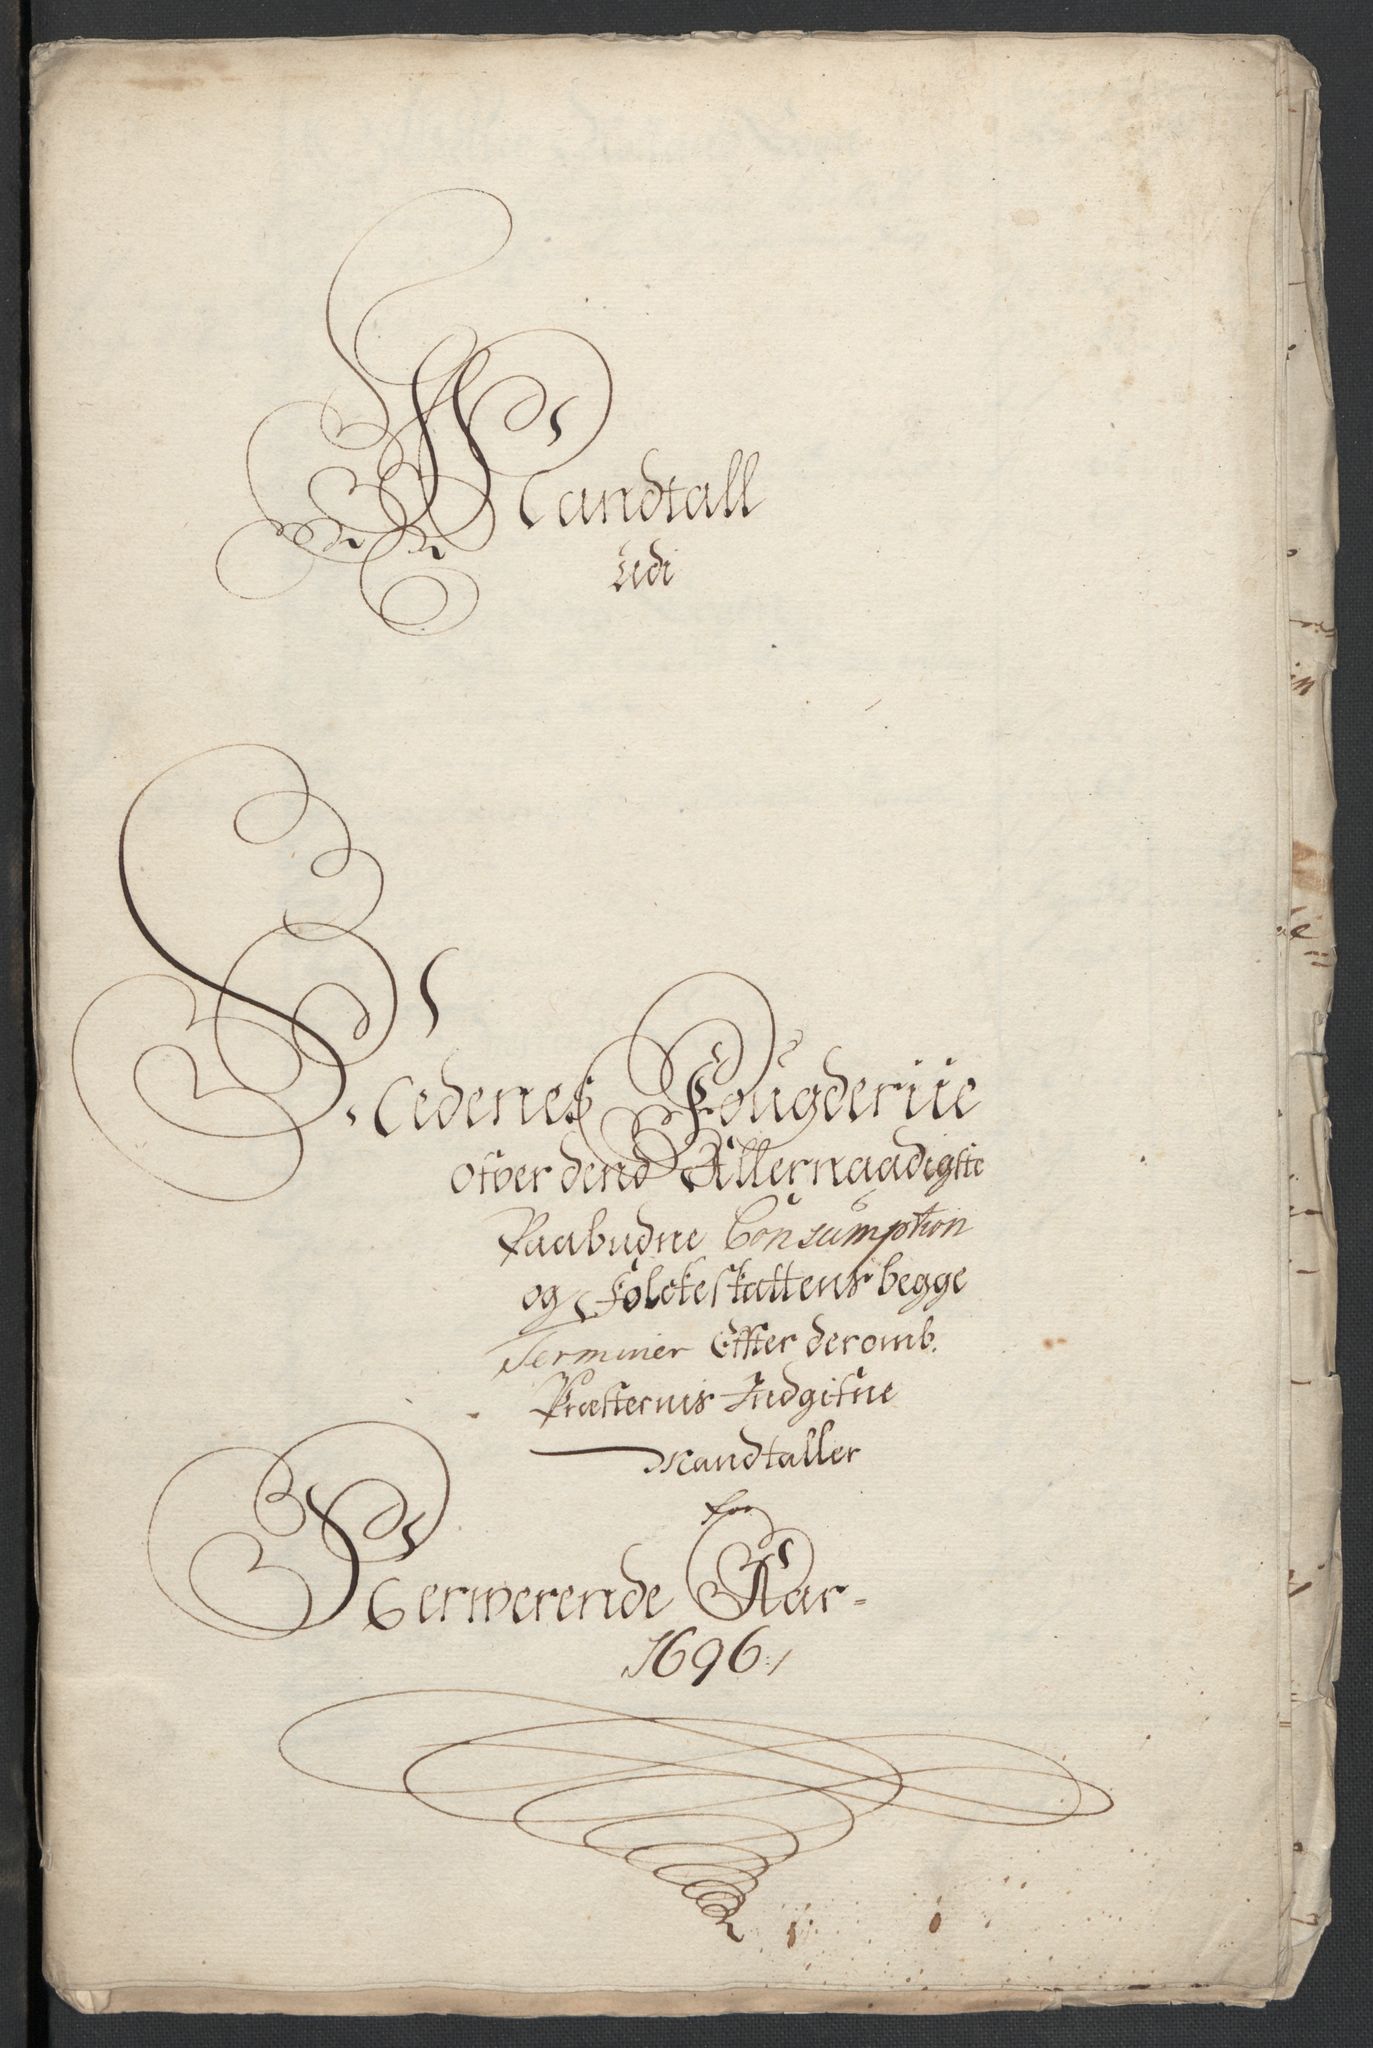 Mandtall
udi
Nedenes Fougderiie
ofver dend Allernaadigste
Paabudne Consumption
og Folckeskattens begge
Terminer Effter deromb.
Præsternis Indgifne
Mandtaller
for
Nerwerende Aar-
1696./